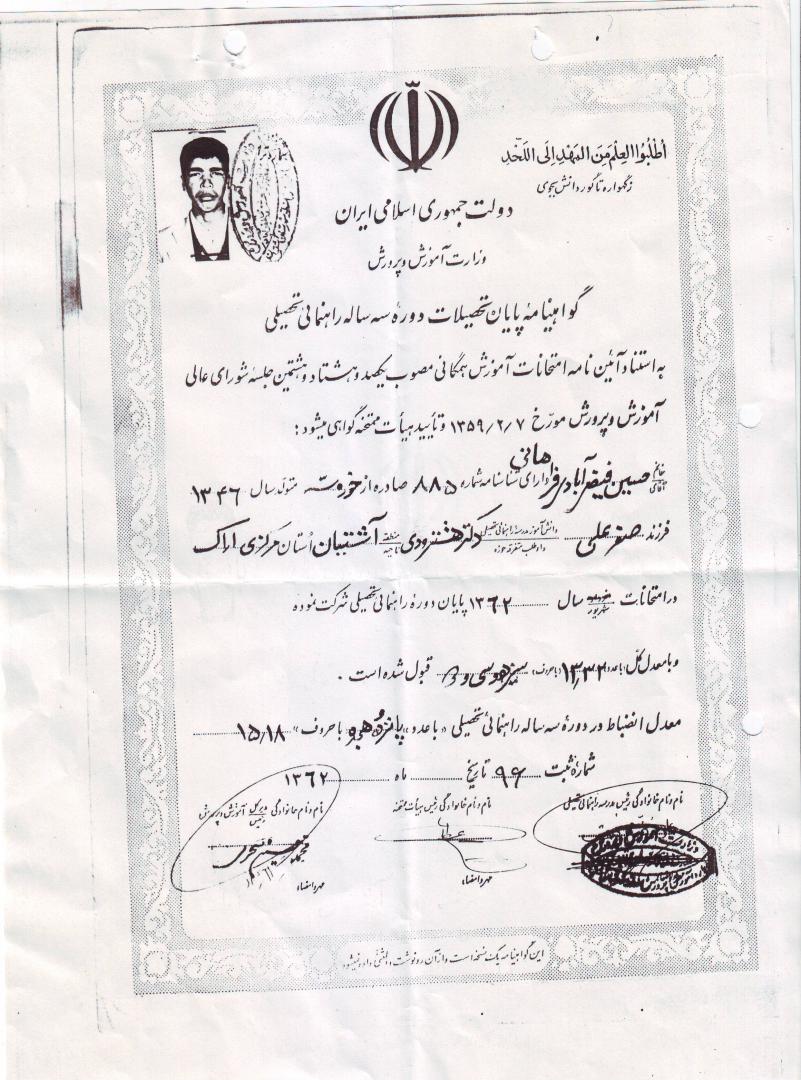 اُطْلُبُوا العِلْمَ مِنَ المَهْدِ إِلَى اللَّحْدِ
ز گهواره تا گور دانش بجوی
دولت جمهوری اسلامی ایران
وزارت آموزش و پرورش
گواهینامهٔ پایان تحصیلات دورهٔ سه ساله راهنمائی تحصیلی
به استناد آئین نامه امتحانات آموزش همگانی مصوب یکصد و هشتاد و هشتمین جلسه شورای عالی
آموزش و پرورش مورّخ ۱۳۵۹/۲/۷ و تأیید هیأت ممتحنه گواهی میشود :
خانم آقای حسین فیض آبادی فراهانی دارای شناسنامه شماره ۸۸۵ صادره از متولد سال ۱۳۴۶
فرزند صفرعلی دانش آموز مدرسه راهنمائی تحصیلی داوطلب متفرقه حوزه دکتر هشترودی منطقه ناحیه آشتیان اُستان مرکزی اراک
در امتحانات خرداد شهریور سال ۱۳۶۲ پایان دورهٔ راهنمائی تحصیلی شرکت نموده
و با معدل کل (با عدد) ۱۳٫۳۲ (با حروف) سیزده و سی و دو قبول شده است .
معدل انضباط در دورهٔ سه ساله راهنمائی تحصیلی «با عدد» پانزده و هجده «با حروف» ۱۵٫۱۸
شمارهٔ ثبت ۹۶ تاریخ ماه ۱۳۶۲
نام و نام خانوادگی رئیس مدرسه راهنمائی تحصیلی
نام و نام خانوادگی رئیس هیأت ممتحنه
نام و نام خانوادگی مدیر کل رئیس آموزش و پرورش
مهر و امضاء
مهر و امضاء
این گواهینامه یک نسخه است و از آن رونوشت و المثنی داده نمیشود